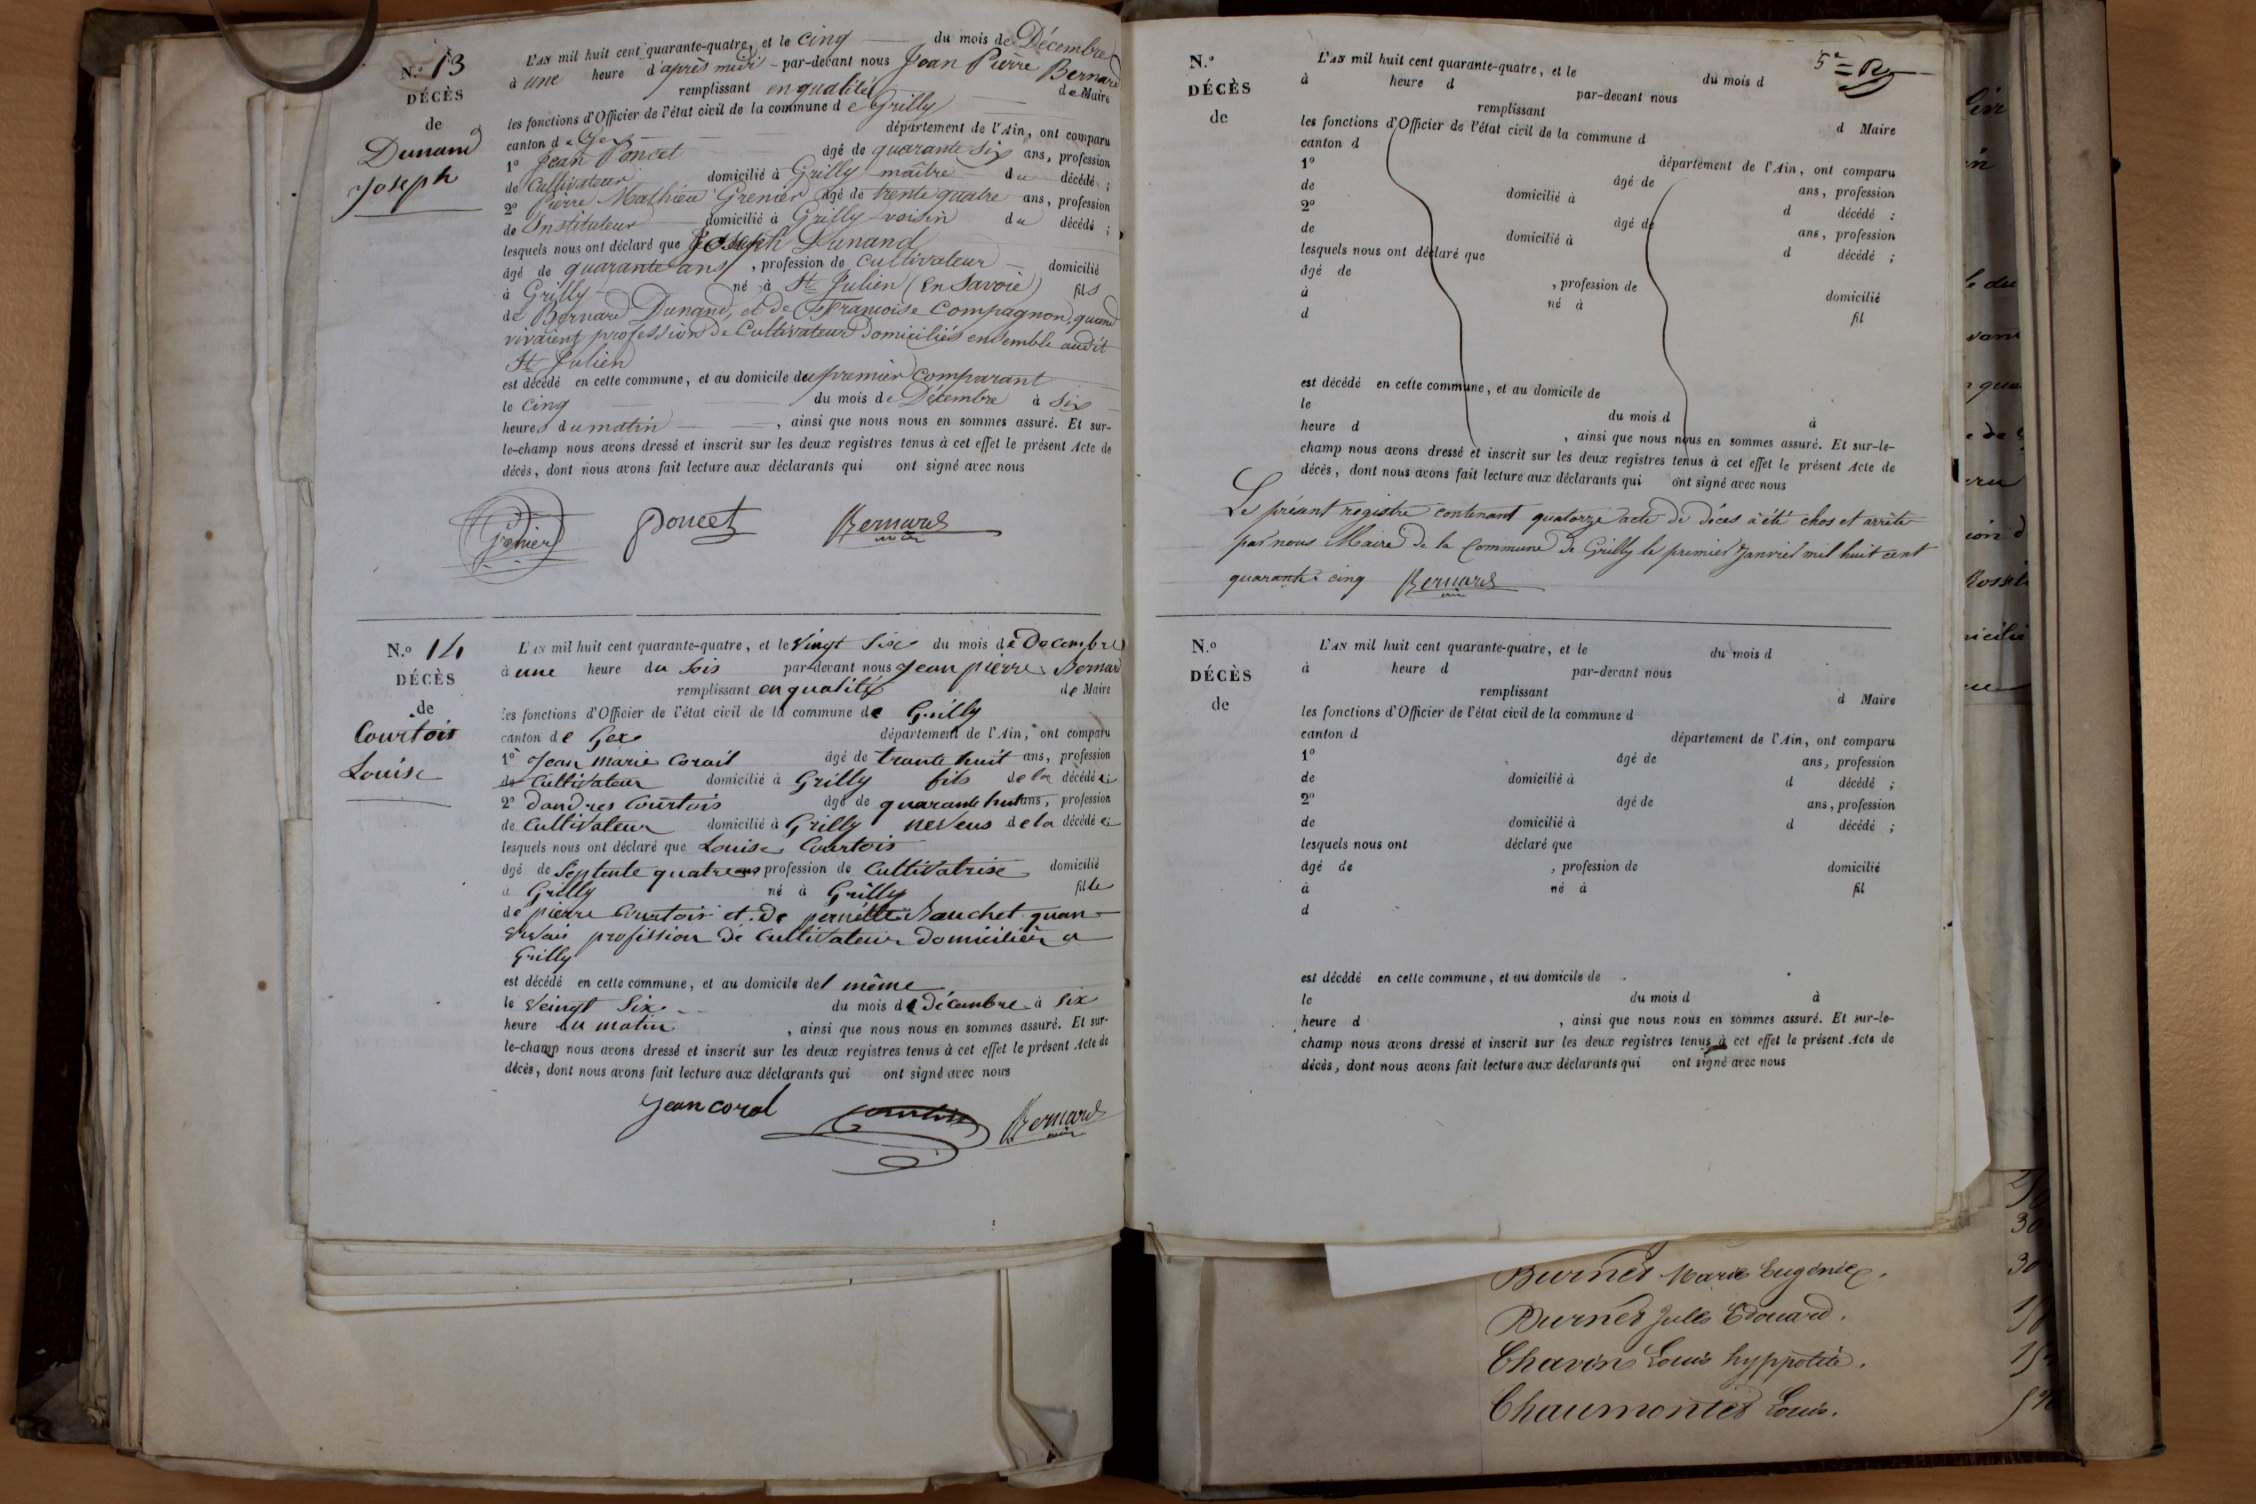 N.º 13
DÉCÈS
de
Dunand
Joseph
L'AN mil huit cent quarante-quatre, et le cinq du mois de Décembre
à une heure d'après midi par-devant nous Jean Pierre Bernard
remplissant en qualité de Maire
les fonctions d'Officier de l'état civil de la commune de Grilly
canton de Gex département de l'Ain, ont comparu
1º Jean Poncet âgé de quarante six ans, profession
de Cultivateur domicilié à Grilly maître du décédé ;
2º Pierre Mathieu Grenier âgé de trente quatre ans, profession
de Instituteur domicilié à Grilly voisin du décédé ;
lesquels nous ont déclaré que Joseph Dunand
âgé de quarante ans, profession de cultivateur domicilié
à Grilly né à St Julien (en Savoie) fils
de Bernard Dunand, et de Francoise Compagnon, quand
vivaient profession de Cultivateur domiciliés ensemble audit
St Julien
est décédé en cette commune, et au domicile du premier comparant
le cinq du mois de Décembre à six
heures du matin, ainsi que nous nous en sommes assuré. Et sur-
le-champ nous avons dressé et inscrit sur les deux registres tenus à cet effet le présent Acte de
décès, dont nous avons fait lecture aux déclarants qui ont signé avec nous
Grenier Poncet Bernard
maire
N.º 14
DÉCÈS
de
Courtois
Louise
L'AN mil huit cent quarante-quatre, et le vingt six du mois de Decembre
à une heure du soir par-devant nous Jean pierre Bernard
remplissant en qualité de Maire
les fonctions d'Officier de l'état civil de la commune de Grilly
canton de Gex département de l'Ain, ont comparu
1º Jean marie Corail âgé de trante huit ans, profession
de Cultivateur domicilié à Grilly fils de la décédée ;
2º dandres Courtois âgé de quarante huit ans, profession
de Cultivateur domicilié à Grilly neveus de la décédée ;
lesquels nous ont déclaré que Louise Courtois
âgé de Septente quatre ans profession de Cultivatrise domicilié
à Grilly né à Grilly fille
de pierre Courtois et de pernette Bauchet quan
vivais profission de Cultivateur domiciliér a
Grilly
est décédé en cette commune, et au domicile del même
le veingt Six du mois de décembre à six
heure du matin, ainsi que nous nous en sommes assuré. Et sur-
le-champ nous avons dressé et inscrit sur les deux registres tenus à cet effet le présent Acte de
décès, dont nous avons fait lecture aux déclarants qui ont signé avec nous
Jean coral Courtois Bernard
maire
5e
N.º
DÉCÈS
de
L'AN mil huit cent quarante-quatre, et le du mois d
à heure d par-devant nous
remplissant d Maire
les fonctions d'Officier de l'état civil de la commune d
canton d département de l'Ain, ont comparu
1º âgé de ans, profession
de domicilié à d décédé ;
2º âgé de ans, profession
de domicilié à d décédé ;
lesquels nous ont déclaré que
âgé de , profession de domicilié
à né à fil
d
est décédé en cette commune, et au domicile de
le du mois d à
heure d , ainsi que nous nous en sommes assuré. Et sur-le-
champ nous avons dressé et inscrit sur les deux registres tenus à cet effet le présent Acte de
décès, dont nous avons fait lecture aux déclarants qui ont signé avec nous
Le présent registre contenant quatorze acte de déces à été clos et arrêté
par nous Maire de la Commune de Grilly le premier Janvier mil huit cent
quarante cinq Bernard
maire
N.º
DÉCÈS
de
L'AN mil huit cent quarante-quatre, et le du mois d
à heure d par-devant nous
remplissant d Maire
les fonctions d'Officier de l'état civil de la commune d
canton d département de l'Ain, ont comparu
1º âgé de ans, profession
de domicilié à d décédé ;
2º âgé de ans, profession
de domicilié à d décédé ;
lesquels nous ont déclaré que
âgé de , profession de domicilié
à né à fil
d
est décédé en cette commune, et au domicile de
le du mois d à
heure d , ainsi que nous nous en sommes assuré. Et sur-le-
champ nous avons dressé et inscrit sur les deux registres tenus à cet effet le présent Acte de
décès, dont nous avons fait lecture aux déclarants qui ont signé avec nous
Burnet Marie Eugénie.
Burnet Jules Edouard.
Chavin Louis hyppolite.
Chaumontet Louis.